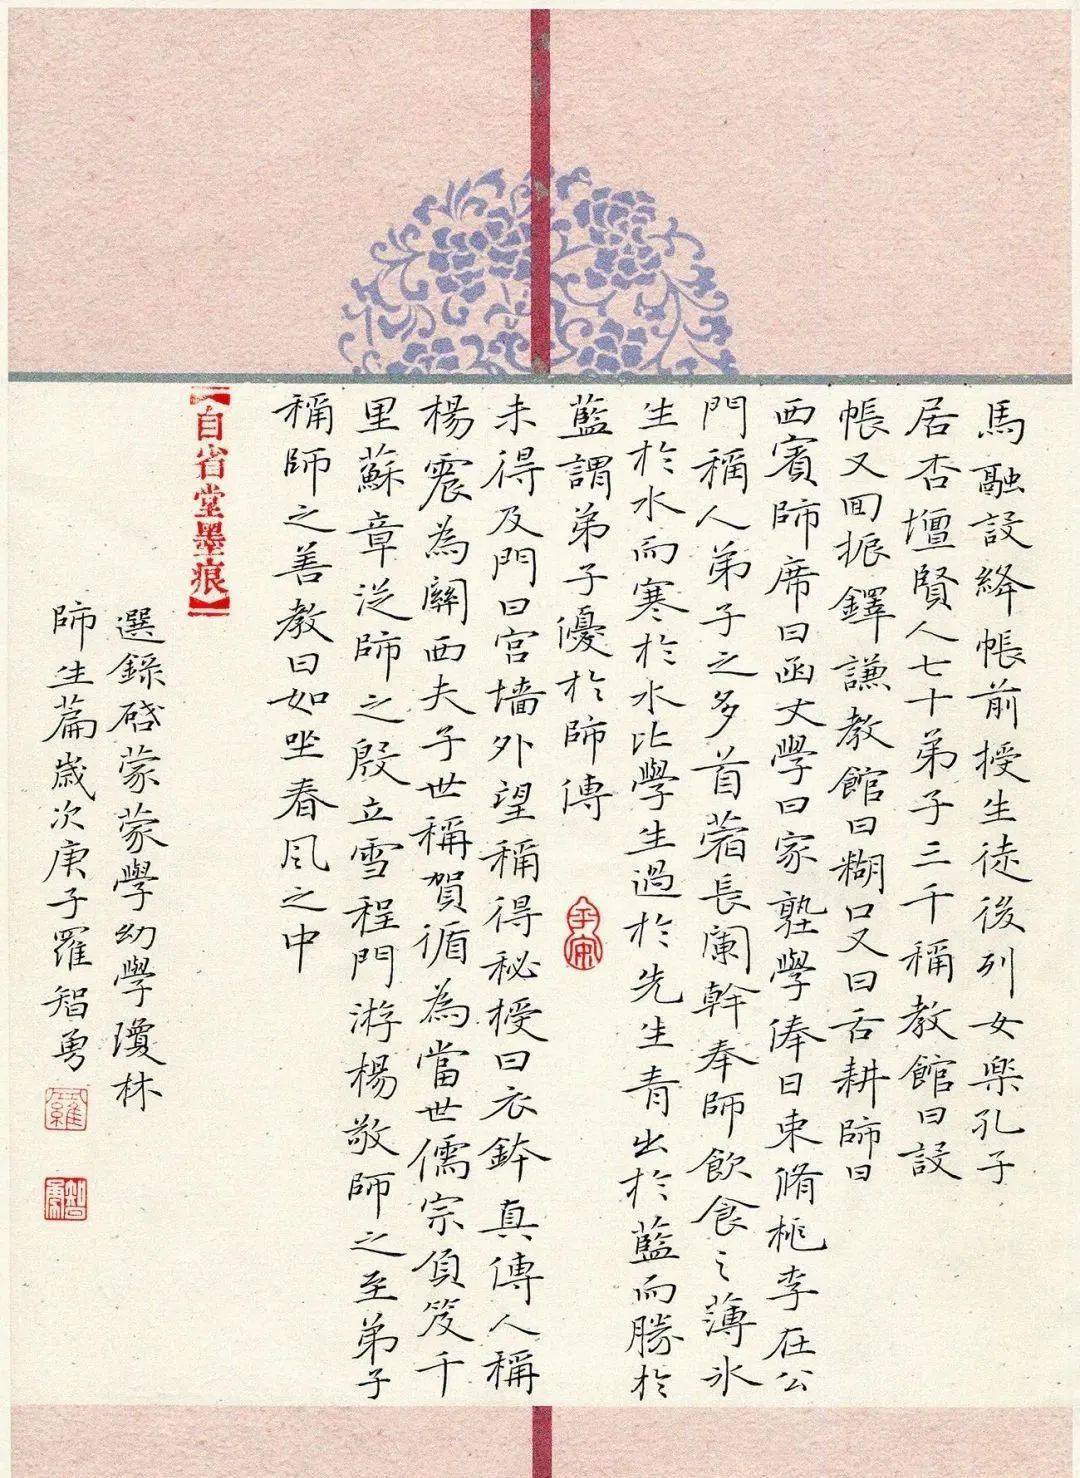 馬融設絳帳前授生徒後列女樂孔子
居杏壇賢人七十弟子三千稱教館曰設
帳又曰振鐸謙教館曰糊口又曰舌耕師曰
西賓師席曰函丈學曰家塾學俸曰束脩桃李在公
門稱人弟子之多苜蓿長闌幹奉師飲食之薄冰
生於水而寒於水比學生過於先生青出於藍而勝於
藍謂弟子優於師傅
未得及門曰宮墻外望稱得秘授曰衣鉢真傳人稱
楊震為關西夫子世稱賀循為當世儒宗負笈千
里蘇章從師之殷立雪程門游楊敬師之至弟子
稱師之善教曰如坐春风之中
【自省堂墨痕】
選錄啓蒙蒙學幼學瓊林
師生篇歲次庚子羅智勇
羅
智勇